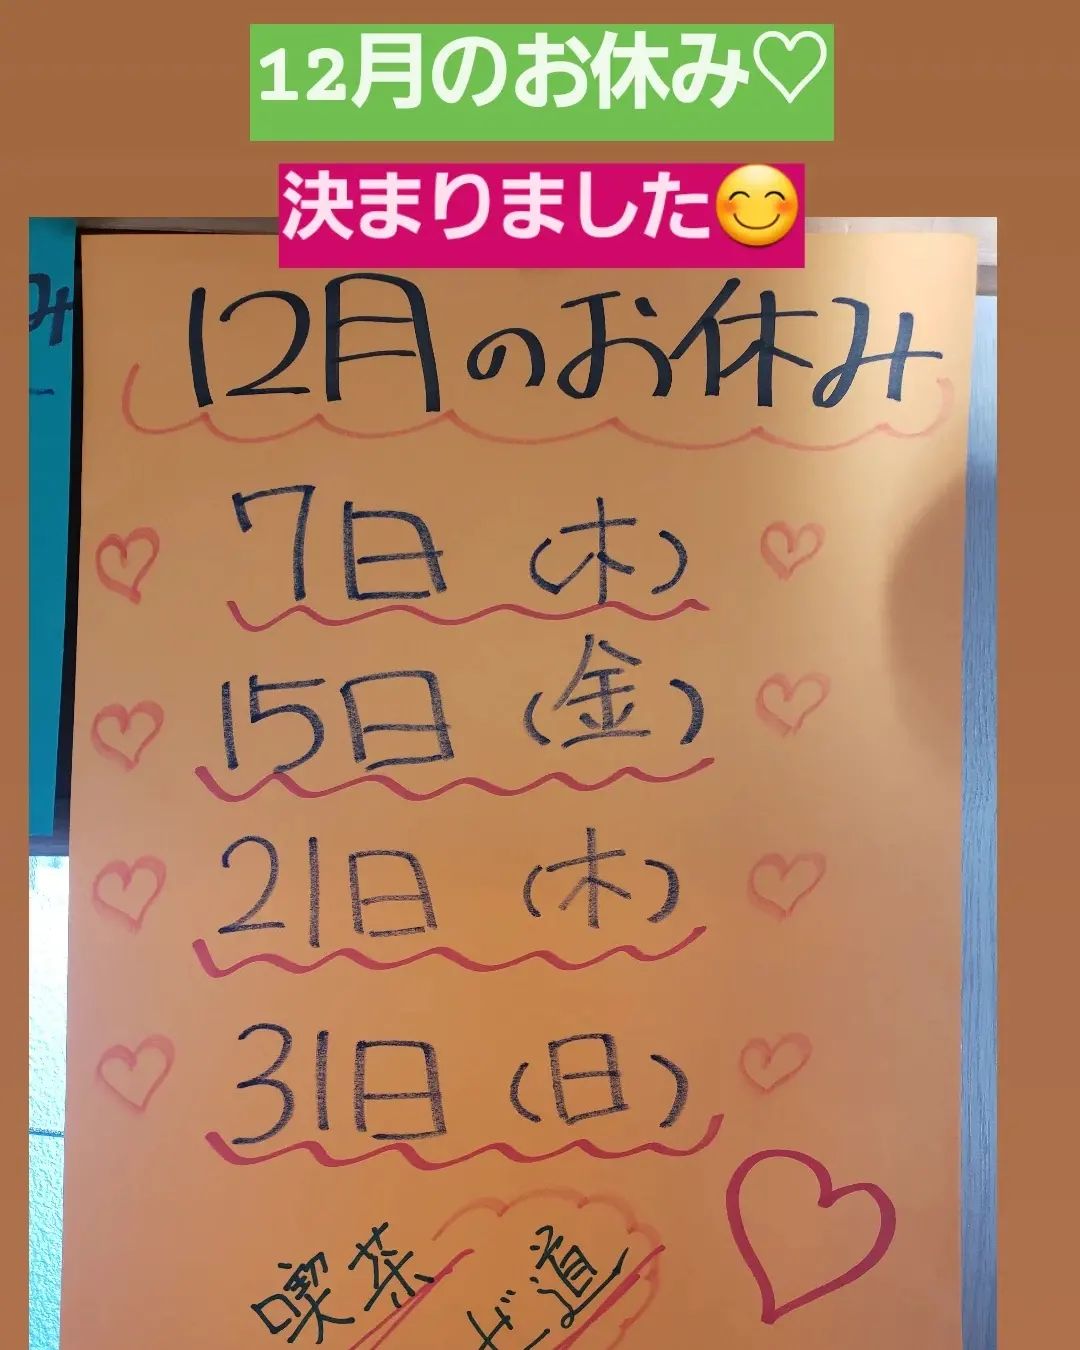 12月のお休み♡
決まりました😊
12月のお休み
7日（木）
15日（金）
21日（木）
31日（日）
喫茶
道
み